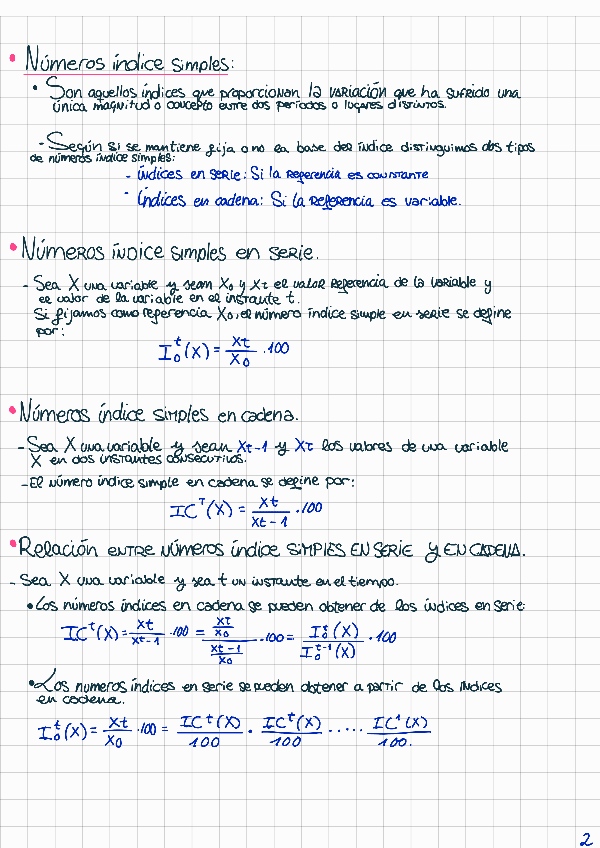 • Números índice simples:
• Son aquellos índices que proporcionan la variación que ha sufrido una
única magnitud o concepto entre dos períodos o lugares distintos.
- Según si se mantiene fija o no la base del índice distinguimos dos tipos
de números índice simples:
- Índices en serie: Si la referencia es constante
- Índices en cadena: Si la referencia es variable.
• Números índice simples en serie.
- Sea X una variable y sean X₀ y Xt el valor referencia de la variable y
el valor de la variable en el instante t.
Si fijamos como referencia X₀, el número índice simple en serie se define
por:
I₀ᵗ(X) = Xt/X₀ · 100
• Números índice simples en cadena.
- Sea X una variable y sean Xt-1 y Xt los valores de una variable
X en dos instantes consecutivos.
- El número índice simple en cadena se define por:
ICᵀ(X) = Xt/Xt-1 · 100
• Relación entre números índice simples en serie y en cadena.
- Sea X una variable y sea t un instante en el tiempo.
• Los números índices en cadena se pueden obtener de los índices en serie:
ICᵗ(X) = Xt/Xt-1 · 100 = (Xt/X₀)/(Xt-1/X₀) · 100 = I₀ᵗ(X)/I₀ᵗ⁻¹(X) · 100
• Los numeros índices en serie se pueden obtener a partir de los índices
en cadena.
I₀ᵗ(X) = Xt/X₀ · 100 = ICᵗ(X)/100 · ICᵗ(X)/100 · ..... IC¹(X)/100.
2